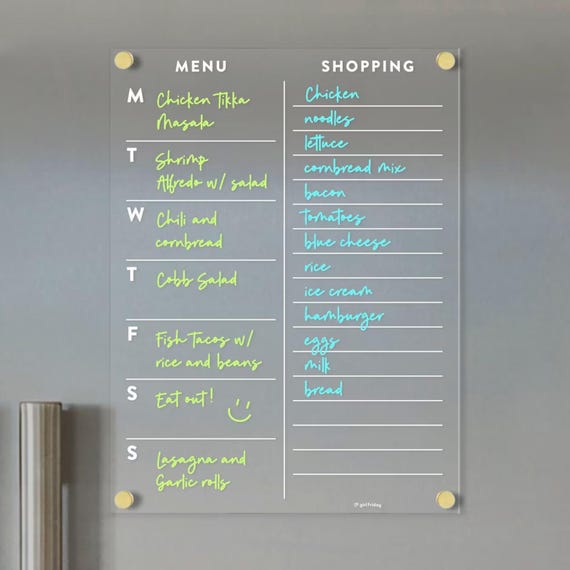 MENU
M Chicken Tikka
Masala
T Shrimp
Alfredo w/ salad
W Chili and
cornbread
T Cobb Salad
F Fish Tacos w/
rice and beans
S Eat out!
S Lasagna and
Garlic rolls
SHOPPING
Chicken
noodles
lettuce
cornbread mix
bacon
tomatoes
blue cheese
rice
ice cream
hamburger
eggs
milk
bread
girlfriday